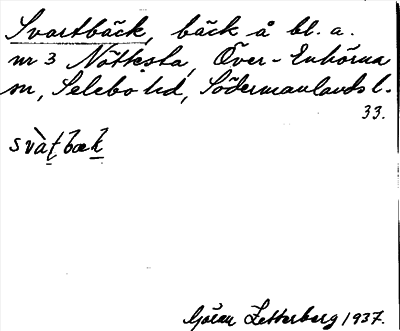 Svartbäck, bäck å bl. a.
nr 3 Nöttesta, Över-Enhörna
sn, Selebo hd, Södermanlands l.
33.
svàt̠bæk̠
Göran Zetterberg 1937.